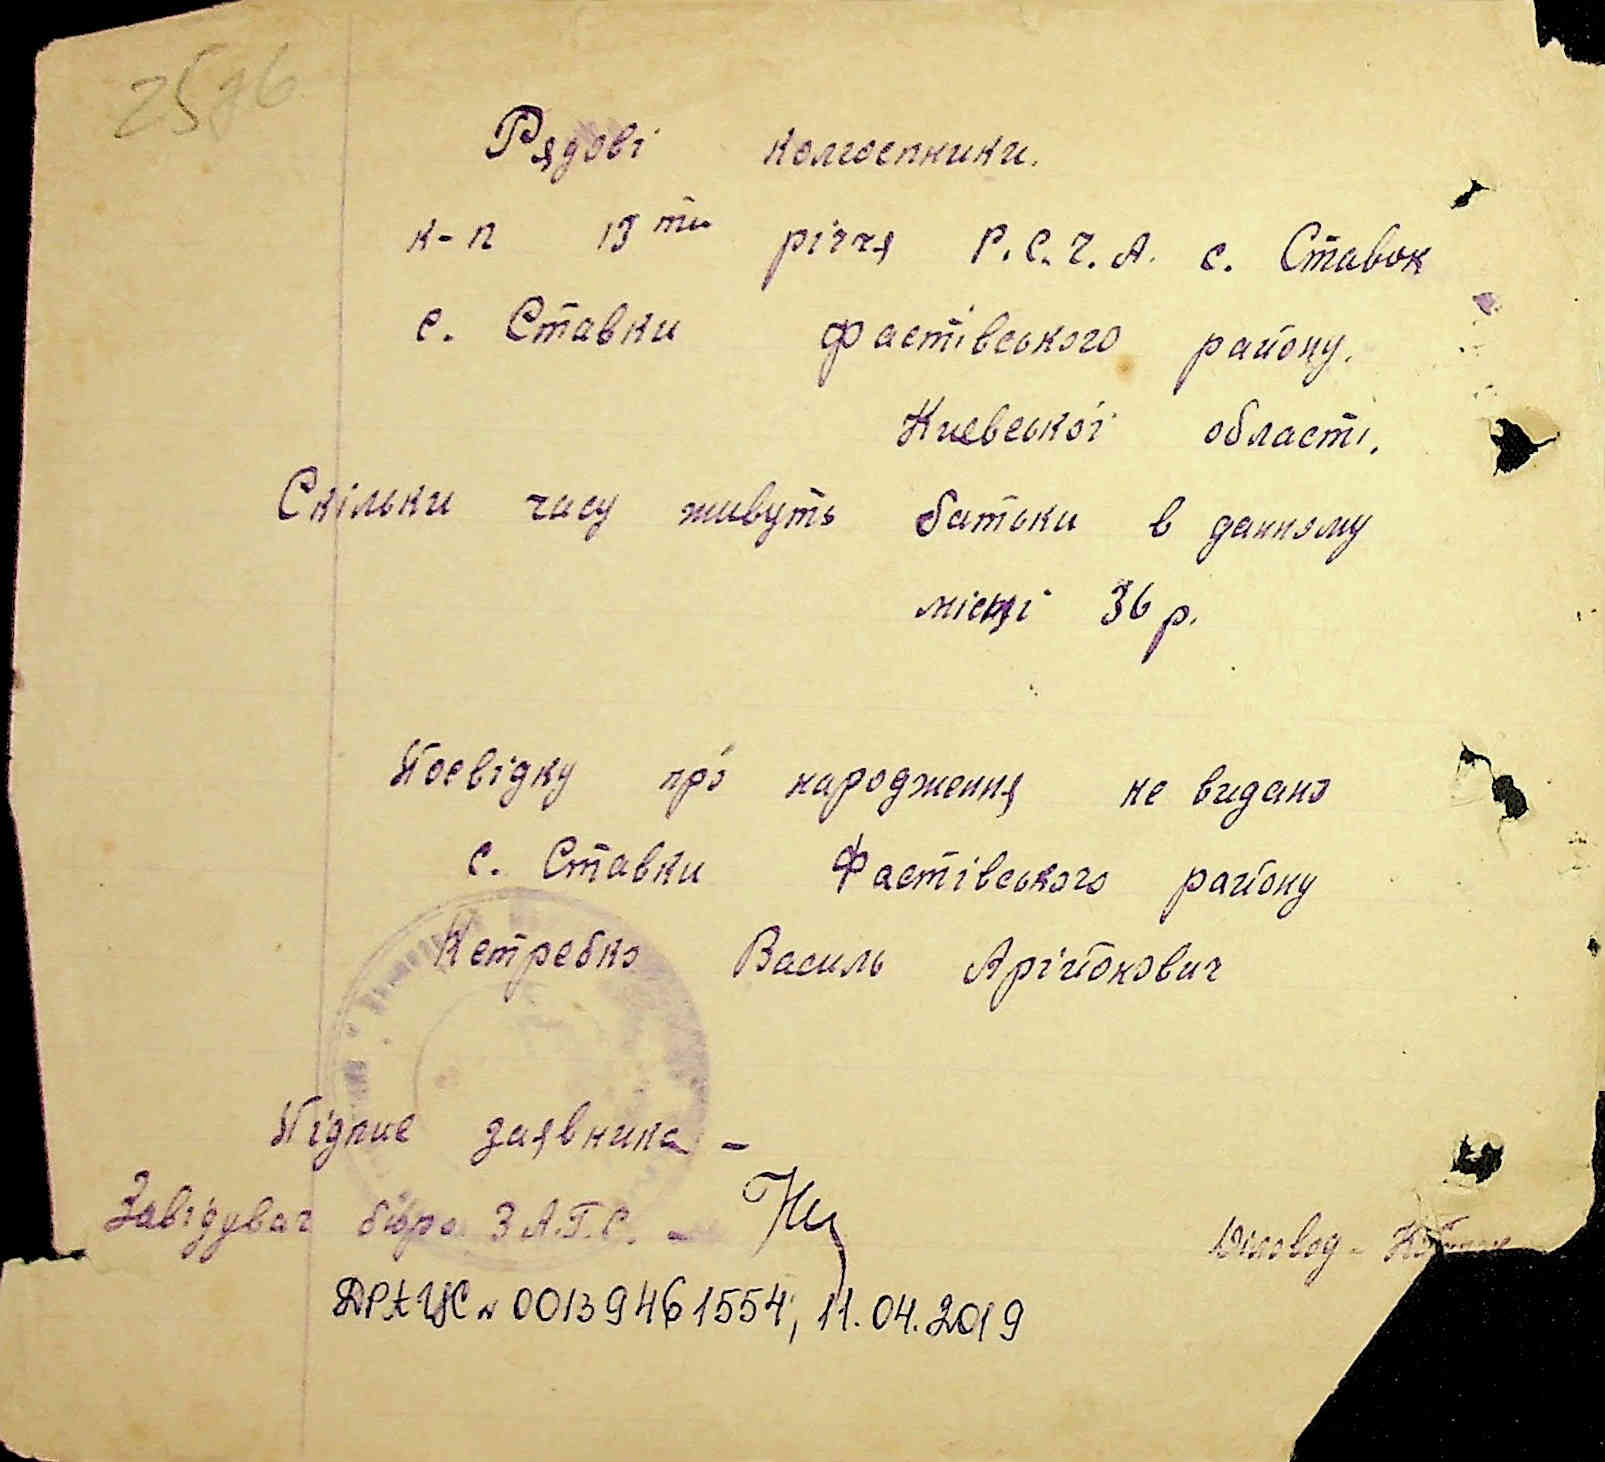 Рядові колгоспники.
к-п 15ти річчя Р.С.Ч.А. с. Ставок
с. Ставки Фастівського району.
Киевської області.
Скільки часу живуть батьки в данному
місті 36 р.
Посвідку про народження не видано
с. Ставки Фастівського району
Кетребко Василь Арійонович
Підпис заявника -
Завідувач бюро ЗАГС. -
Діловод -
ДРАЦС № 00139461554, 11.04.2019